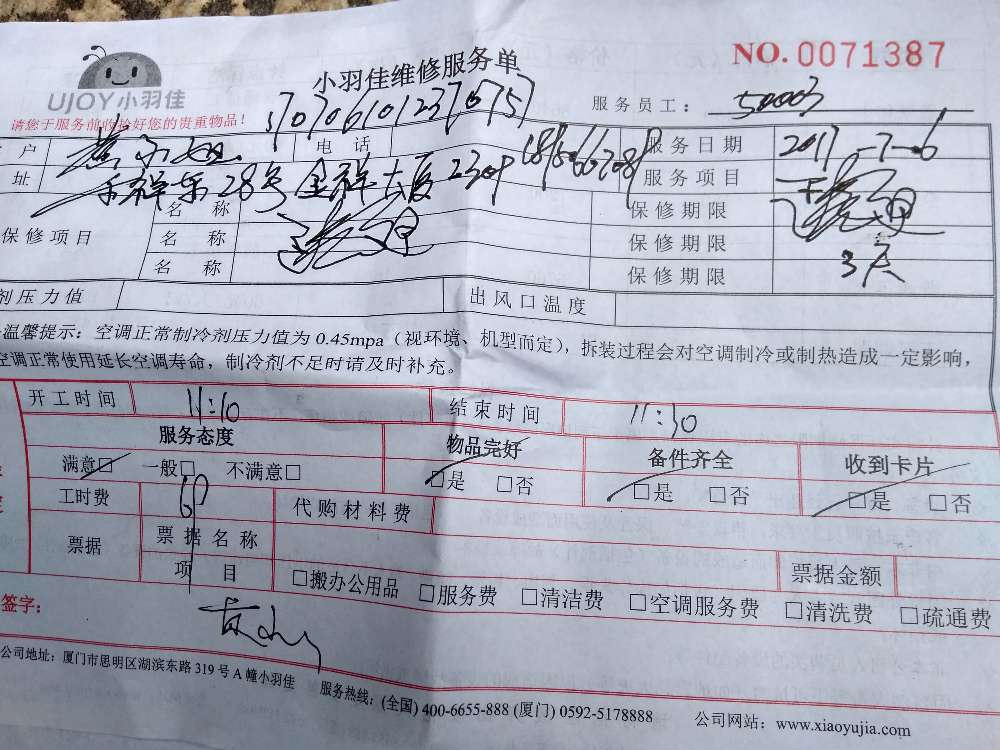 NO.0071387
小羽佳维修服务单
UJOY小羽佳
服务员工：
请您于服务前收拾好您的贵重物品！
户 电 话 服务日期 2017-7-6
址 28号 服务项目
保修项目 名 称 保修期限
名 称 保修期限
名 称 保修期限 3天
剂压力值 出风口温度
温馨提示：空调正常制冷剂压力值为 0.45mpa（视环境、机型而定），拆装过程会对空调制冷或制热造成一定影响，
空调正常使用延长空调寿命，制冷剂不足时请及时补充。
开工时间 11:10 结束时间 11:30
服务态度 物品完好 备件齐全 收到卡片
满意□ 一般□ 不满意□ □是 □否 □是 □否 □是 □否
工时费 60 代购材料费
票据 票据名称
项 目 □搬办公用品 □服务费 □清洁费 □空调服务费 □清洗费 □疏通费
票据金额
签字：
公司地址：厦门市思明区湖滨东路 319 号 A 幢小羽佳 服务热线：(全国) 400-6655-888 (厦门) 0592-5178888 公司网站：www.xiaoyujia.com